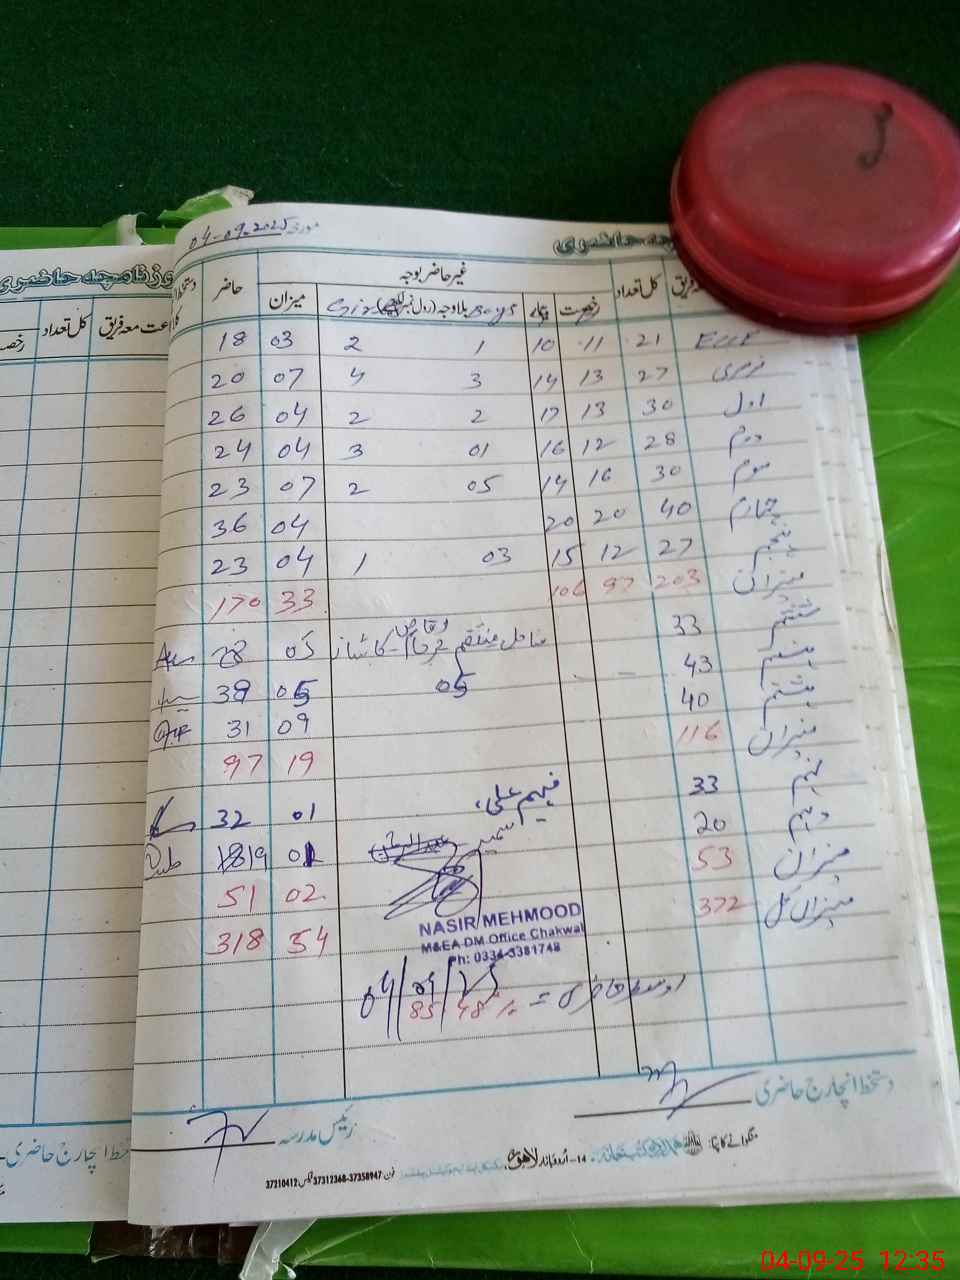 مورخہ 04-09-2025
روزنامچہ حاضری
جماعت معہ فریق کل تعداد رخصت بیمار غیر حاضر بوجہ حاضر دستخط
Boys بلا وجہ (رول نمبر) Girls میزان
ECCE 21 11 10 1 2 03 18
نرسری 27 13 14 3 4 07 20
اول 30 13 17 2 2 04 26
دوم 28 12 16 01 3 04 24
سوم 30 16 14 05 2 07 23
چہارم 40 20 20 04 36
پنجم 27 12 15 03 1 04 23
میزان 203 97 106 33 170
ششم 33 05 28
ہفتم 43 05 05 38
ہشتم 40 09 31
میزان 116 19 97
نہم 33 فہیم علی، 01 32
دہم 20 01 19
میزان 53 02 51
میزان کل 372 54 318
NASIR MEHMOOD
M&EA DM Office Chakwal
Ph: 0334-3381748
04/09/25
اوسط حاضری = 85.48%
دستخط انچارج حاضری
رئیس مدرسہ
منگوانے کا پتہ:
14-اُردو بازار لاہور
فون 37358947-37312368 فیکس 37210412
کل تعداد
رخصت
04-09-25 12:35